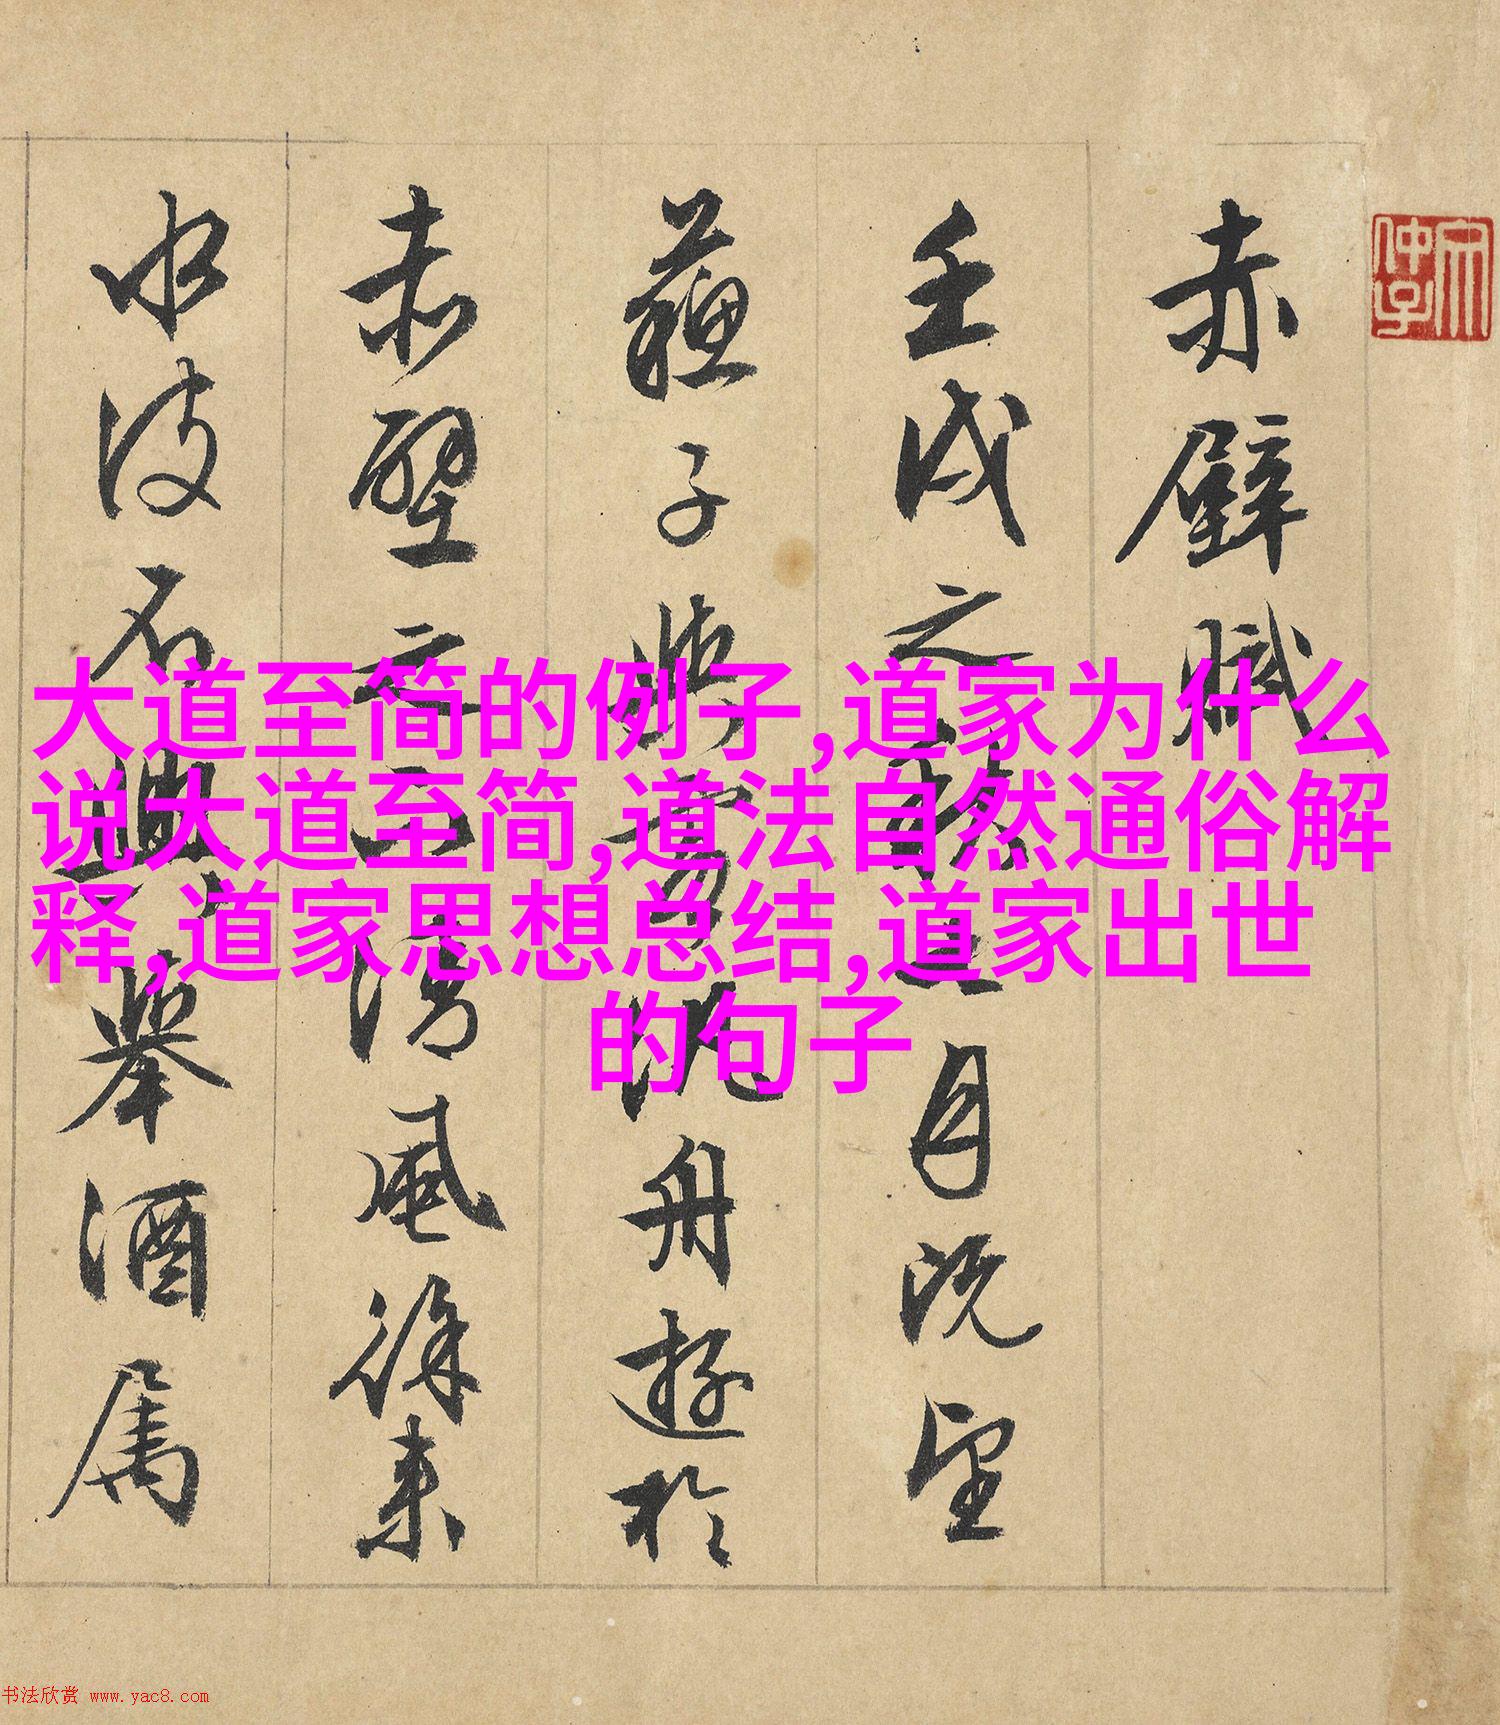 赤壁賦
壬戌之秋七月既望
蘇子與客汎舟遊於
赤壁之下清風徐来
水波不興舉酒属
大道至简的例子,道家为什么
说大道至简,道法自然通俗解
释,道家思想总结,道家出世
的句子
书法欣赏 www.yac8.com